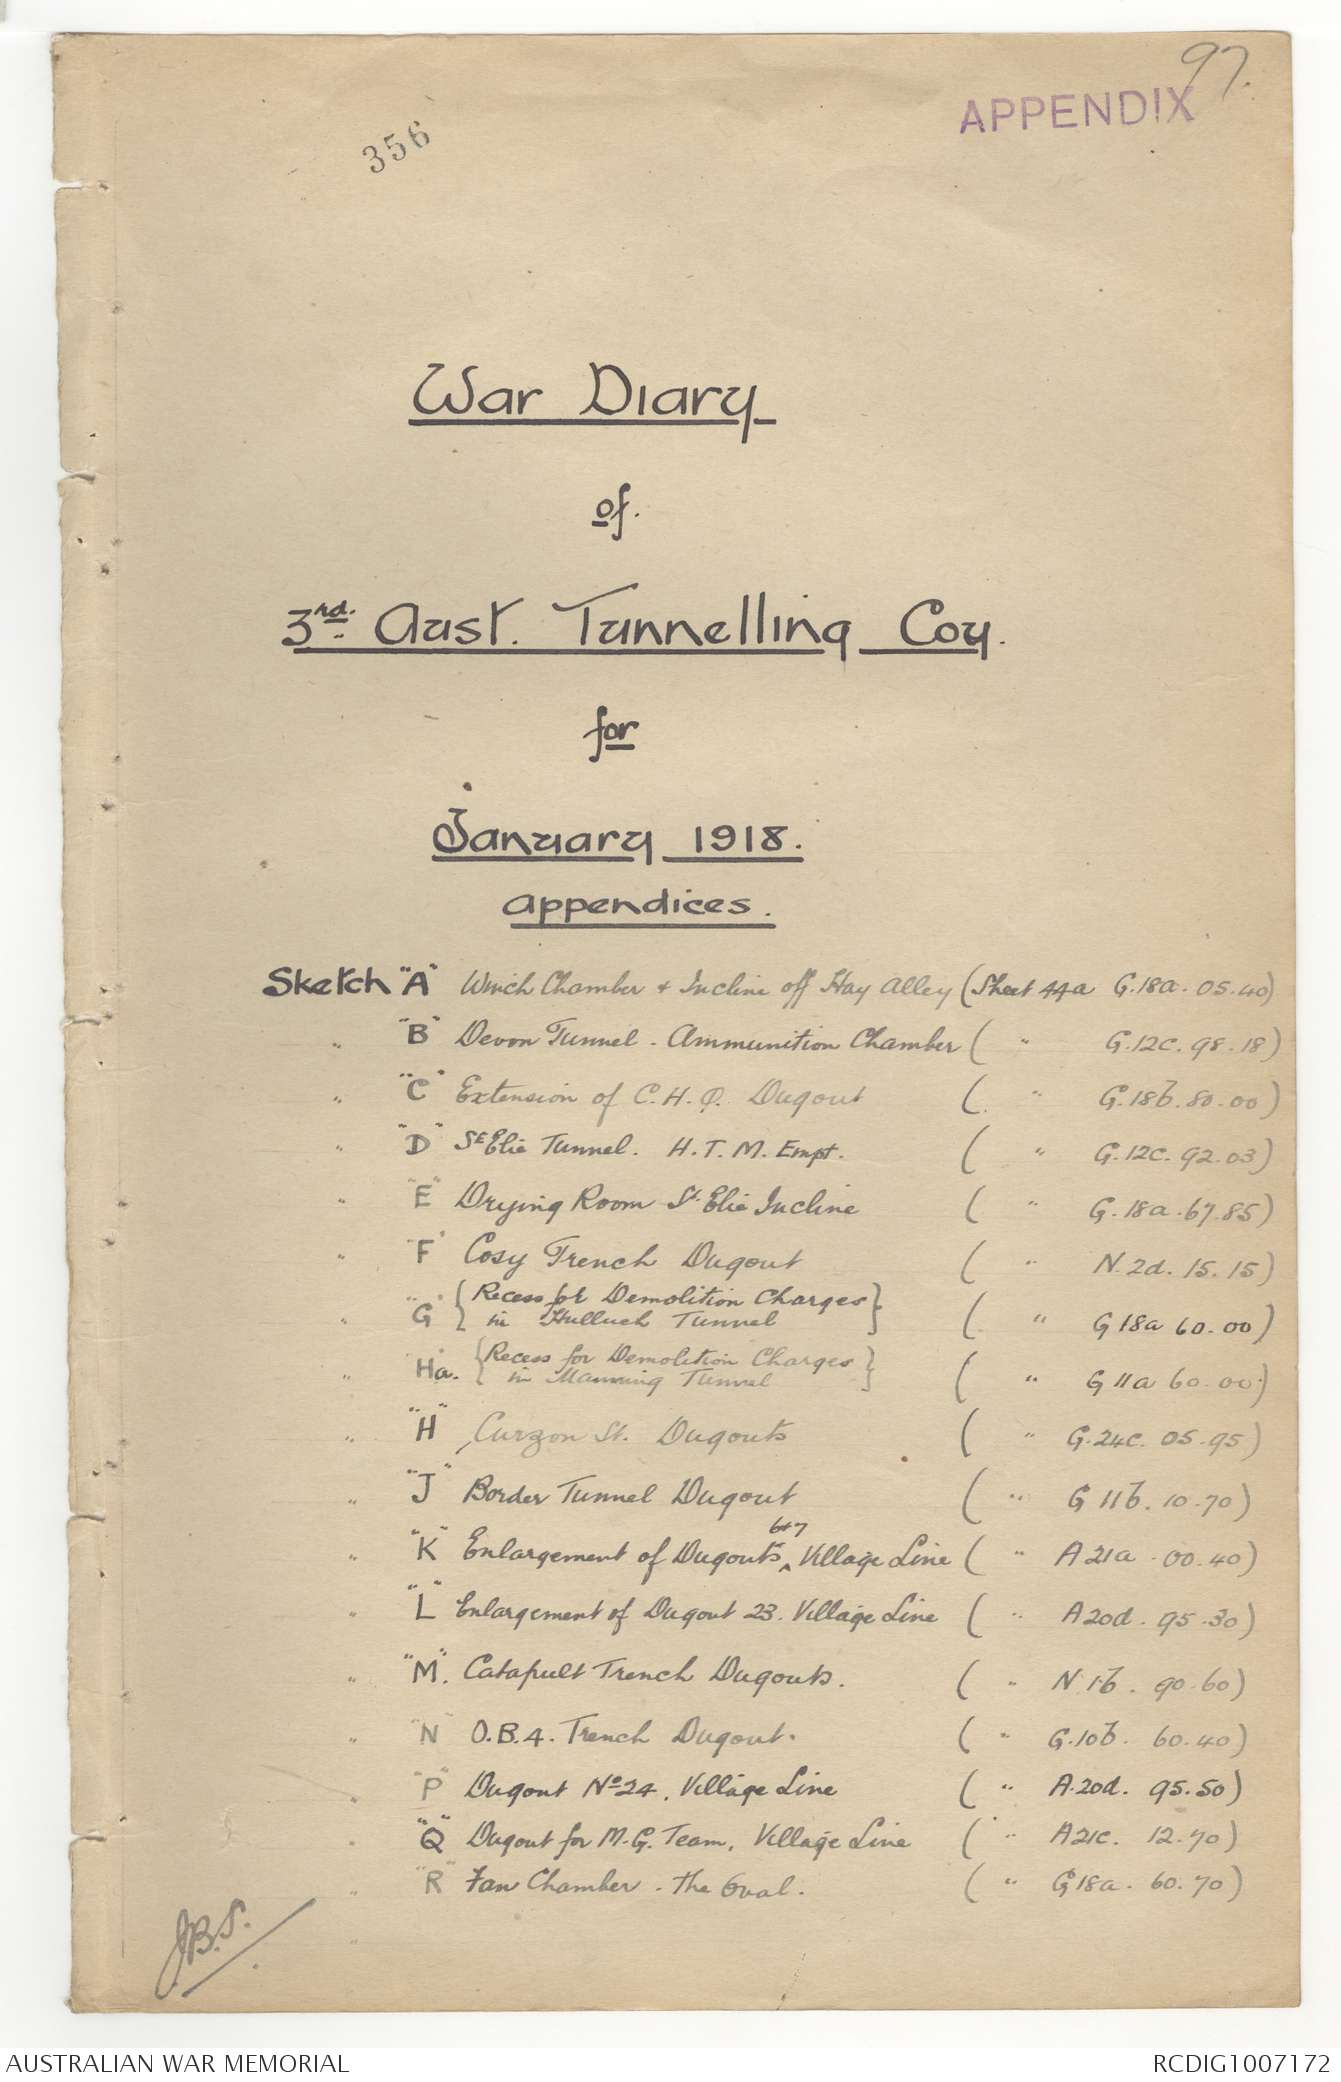 97.
APPENDIX
356
War Diary
of.
3rd. Aust. Tunnelling Coy.
for
January 1918.
appendices.
Sketch "A" Winch Chamber + Incline off Hay Alley (Sheet 44a G.18a. 05.40)
" "B" Devon Tunnel - Ammunition Chamber ( " G.12c. 98.18)
" "C" Extension of C.H.Q. Dugout ( " G.18b. 80.00)
" "D" St Elie Tunnel. H.T.M. Empt. ( " G.12c. 92.03)
" "E" Drying Room St. Elie Incline ( " G.18a. 67.85)
" "F" Cosy Trench Dugout ( " N.2d. 15.15)
" "G" {Recess for Demolition Charges
in Hulluch Tunnel} ( " G18a 60.00)
" "Ha. {Recess for Demolition Charges
in Manning Tunnel} ( " G11a 60.00)
" "H" Curzon St. Dugouts ( " G.24c. 05.95)
" "J" Border Tunnel Dugout ( " G11b. 10.70)
6+7
" "K" Enlargement of Dugouts ^ Village Line ( " A21a .00.40)
" "L" Enlargement of Dugout 23. Village Line ( " A20d. 95.30)
" "M". Catapult Trench Dugouts. ( " N.1b. 90.60)
" "N" O.B.4. Trench Dugout. ( " G.10b. 60.40)
" "P" Dugout No 24. Village Line ( " A.20d. 95.50)
" "Q" Dugout for M.G. Team. Village Line ( " A21c. 12.70)
" "R" Fan Chamber - The Oval. ( " G18a. 60.70)
"
J.B.S.
AUSTRALIAN WAR MEMORIAL
RCDIG1007172